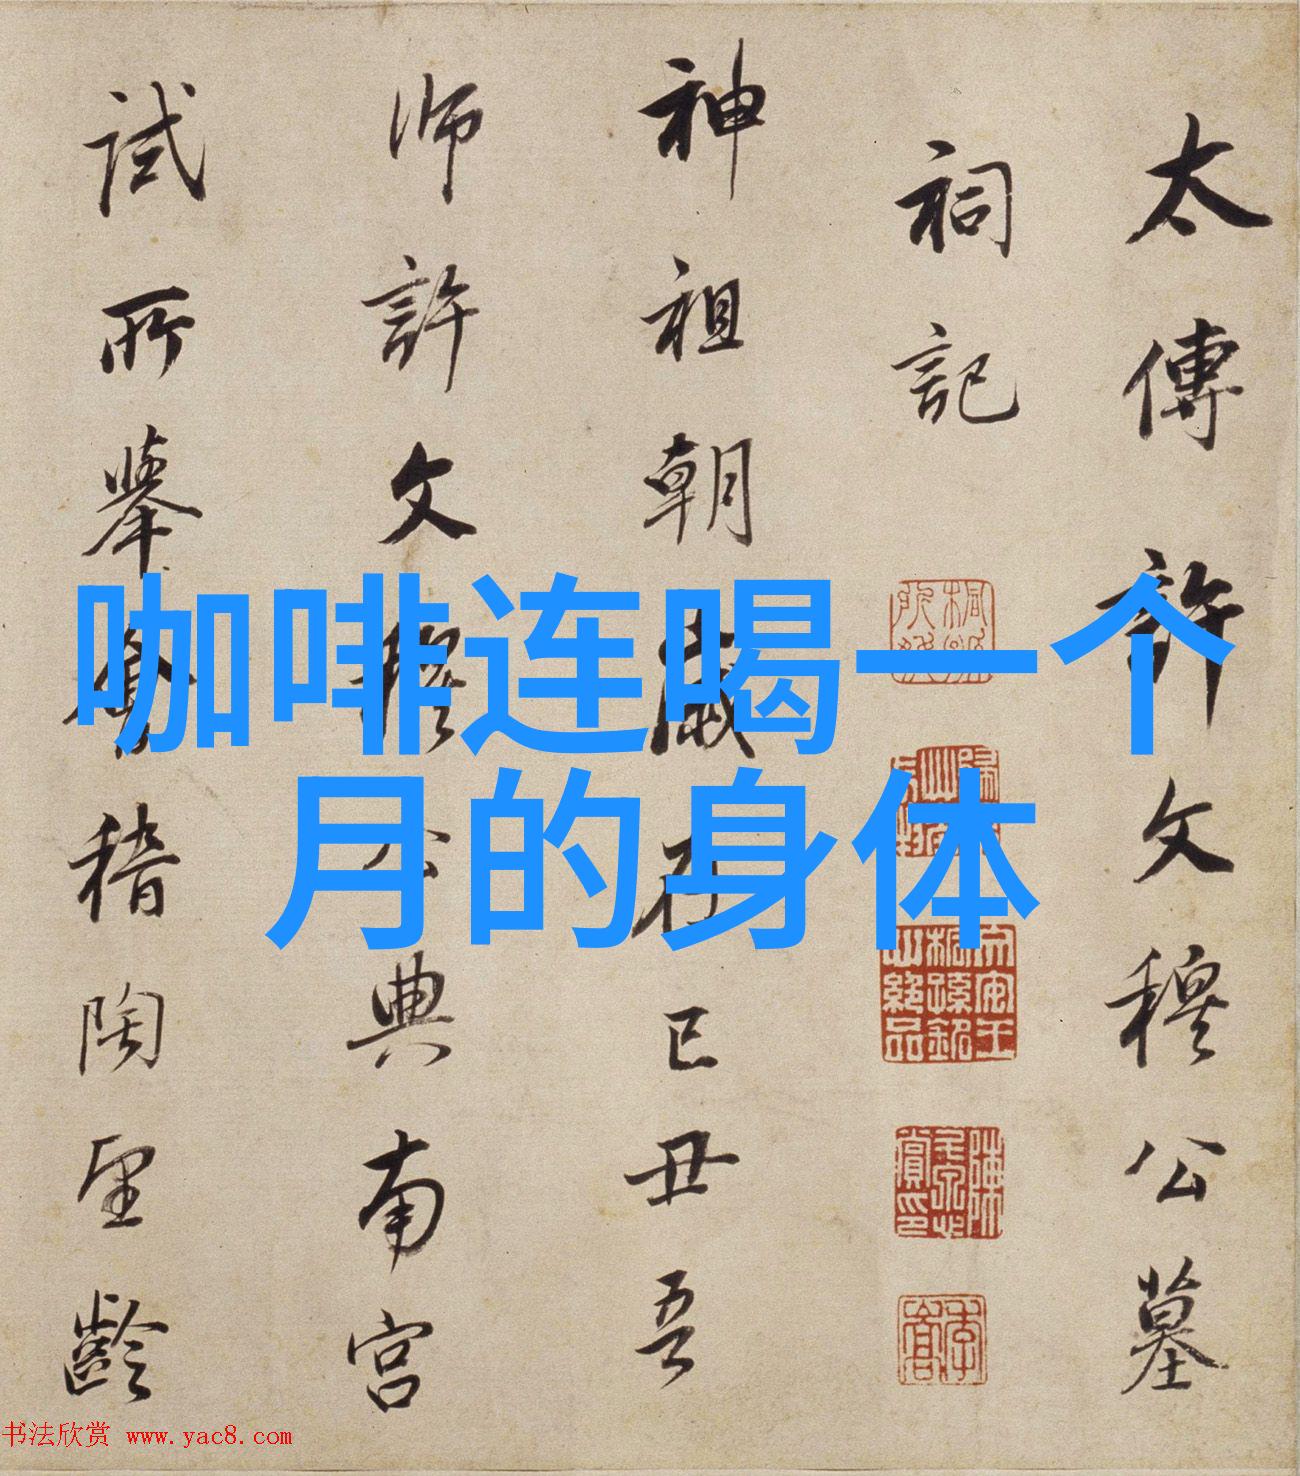 太傅許文穆公墓
祠記
神祖朝歲在已丑吾
师許文穆公典南宫
試所舉會稽陶望齡
咖啡连喝一个
月的身体
书法欣赏 www.yac8.com